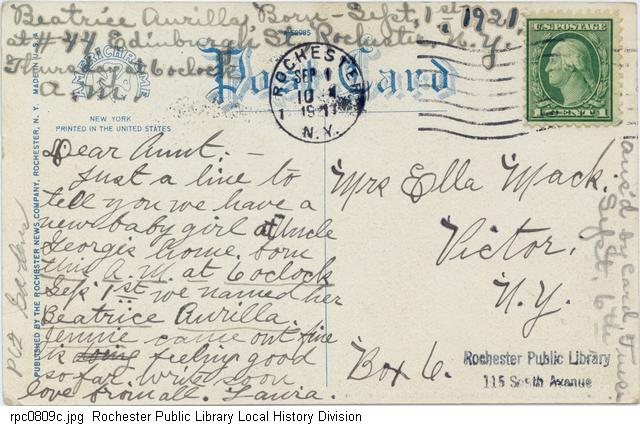 Beatrice Aurilla, Born - Sept, 1st, 1921,
at # 44 Edinburgh St Rochester N. Y.
Thurs at 6 oclock
A. M.
Post Card
AMERICHROME
NEW YORK
PRINTED IN THE UNITED STATES
ROCHESTER
SEP 1
N.Y.
U.S. POSTAGE
1 CENT 1
MADE IN U.S.A.
PUBLISHED BY THE ROCHESTER NEWS COMPANY, ROCHESTER, N. Y.
Dear Aunt, -
Just a line to
tell you we have a
new baby girl at Uncle
Georgis home. born
this A. M. at 6 oclock
Sep 1st we named her
Beatrice Aurilla.
Jennie came out fine
is feeling good
so far. write soon
love from all. Laura.
Mrs Ella Mack.
Victor,
N. Y.
Box 6.
by card
Sept. 6th
Rochester Public Library
115 South Avenue
rpc0809c.jpg Rochester Public Library Local History Division